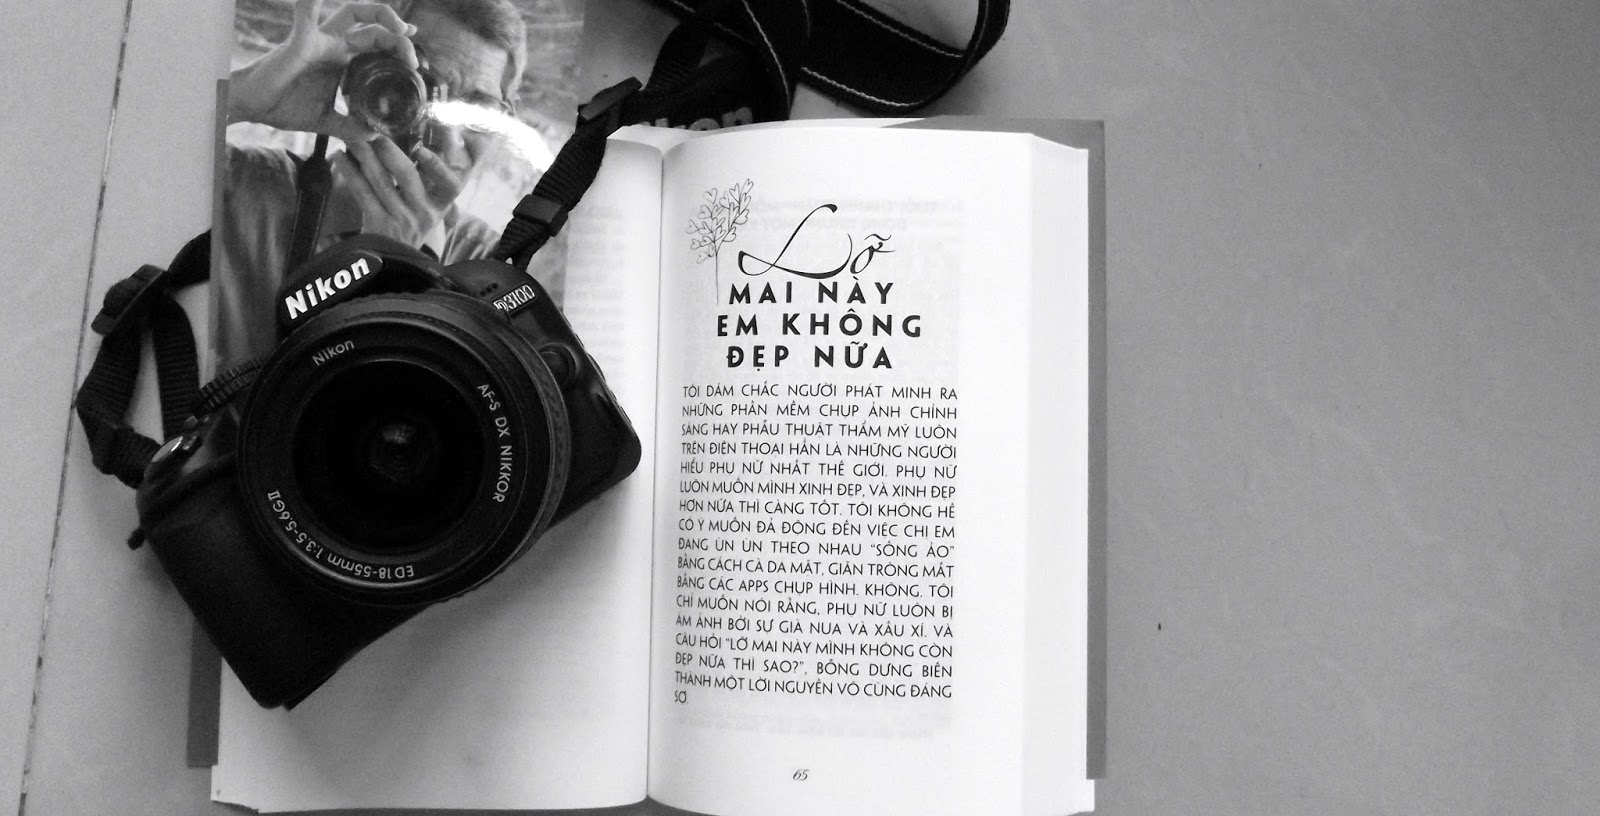 Nikon
D3100
Nikon
AF-S DX NIKKOR
ED 18-55mm 1:3.5-5.6GII
Nikon
Lỡ
MAI NÀY
EM KHÔNG
ĐẸP NỮA
TÔI DÁM CHẮC NGƯỜI PHÁT MINH RA
NHỮNG PHẦN MỀM CHỤP ẢNH CHỈNH
SÁNG HAY PHẪU THUẬT THẨM MỸ LUÔN
TRÊN ĐIỆN THOẠI HẲN LÀ NHỮNG NGƯỜI
HIỂU PHỤ NỮ NHẤT THẾ GIỚI. PHỤ NỮ
LUÔN MUỐN MÌNH XINH ĐẸP, VÀ XINH ĐẸP
HƠN NỮA THÌ CÀNG TỐT. TÔI KHÔNG HỀ
CÓ Ý MUỐN ĐẢ ĐỘNG ĐẾN VIỆC CHỊ EM
ĐANG ÙN ÙN THEO NHAU “SỐNG ẢO”
BẰNG CÁCH CÀ DA MẶT, GIÃN TRÒNG MẮT
BẰNG CÁC APPS CHỤP HÌNH. KHÔNG. TÔI
CHỈ MUỐN NÓI RẰNG, PHỤ NỮ LUÔN BỊ
ÁM ẢNH BỞI SỰ GIÀ NUA VÀ XẤU XÍ. VÀ
CÂU HỎI “LỠ MAI NÀY MÌNH KHÔNG CÒN
ĐẸP NỮA THÌ SAO?”, BỖNG DƯNG BIẾN
THÀNH MỘT LỜI NGUYỀN VÔ CÙNG ĐÁNG
SỢ.
65